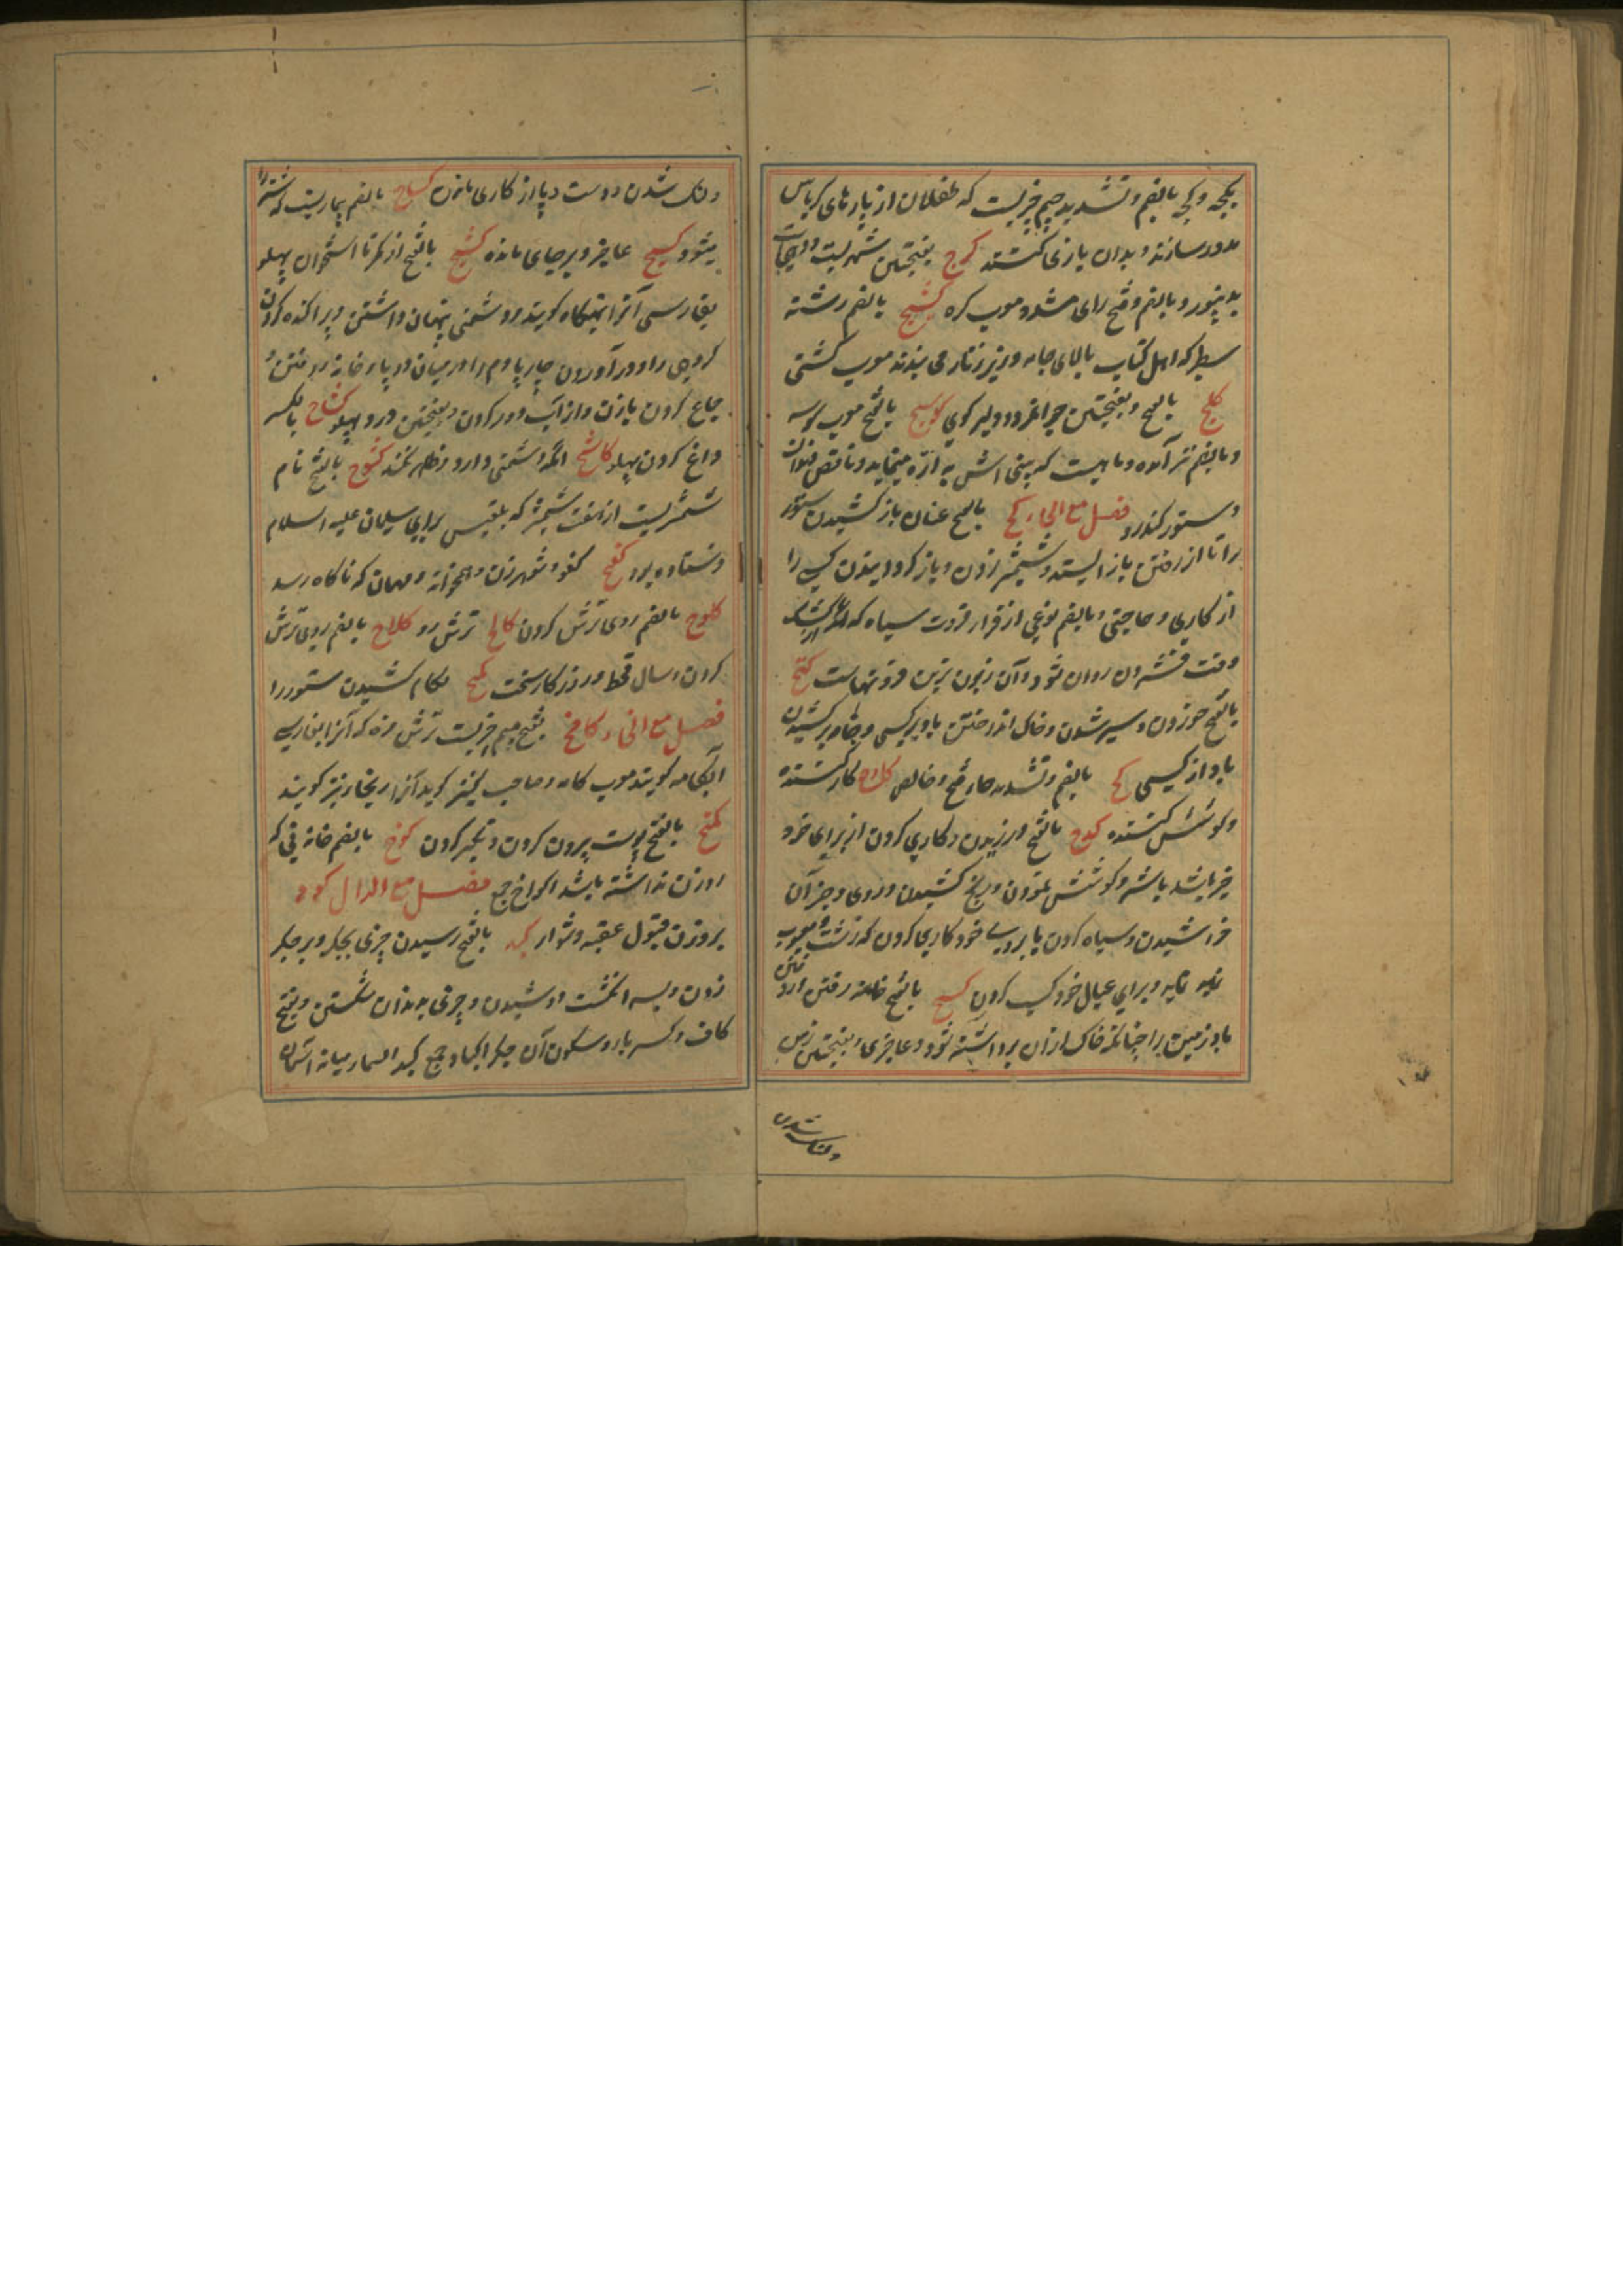 بکجه و کجه بالضم و تشدید جیم چیزیست که طفلان از پارهای کرباس
مدور سازند و بدان بازی کنند کرج بفتحتین شهریست
و بالضم و فتح رای مشدد معرب کره کستیج بالضم رشته
سطبر که اهل کتاب بالای جامه و زیر زنار می بندند معرب کشتی
کلج بالفتح و بفتحتین جوانمرد و دلیر کوسج بالفتح معرب کوسه
و بالضم نیز آمده و ماهیست که بینی اش به ارّه میماند و ناقص دندان
و ستور کندرو فصل مع الحاء کبح بالفتح عنان باز کشیدن ستور
را تا از رفتن باز ایستد و شمشیر زدن و باز کردانیدن کسی را
از کاری و حاجتی و بالضم نوعی از سیاه که
وقت روان شود و آن زبون ترین است کتح
بالفتح خوردن و سیر شدن و خاک انداختن باد بر کسی و جامه بر کشیدن
باد از کسی کح بالضم و تشدید حا قح و خالص کادح کار کننده
و کوشش کننده کدح بالفتح ورزیدن و کاری کردن از برای خود
خیر باشد یا شر و کوشش نمودن و رنج کشیدن و روی و جز آن
خراشیدن و سیاه کردن یا بروی خود کاری کردن که زشت و معیوب
نماید و برای عیال خود کسب کردن کسح بالفتح خانه رفتن
باد زمین را چنانکه خاک از آن برداشته شود و عاجزی و بفتحتین زمین
و لنک شدن
و لنک شدن دست و پا و از کاری ماندن کساح بالضم بیماریست که شتر را
میشود کسیح عاجز و بر جای مانده کشح بالفتح از کمر تا استخوان پهلو
بفارسی آنرا تهیکاه کویند و دشمنی پنهان داشتن و پراکنده کردن
کروهی را و در آوردن چارپا دم را در میان دو پا و خانه رفتن و
جماع کردن با زن و از آب دور کردن و بفتحتین درد پهلو کشاح بالکسر
داغ کردن پهلو کاشح انکه دشمنی دارد و ظاهر نکند کشوح بالفتح نام
شمشیریست از هفت شمشیر که بلقیس برای سلیمان علیه السلام
فرستاده بود کفیح کفو و شوهر زن و همخوابه و مهمان که ناکاه رسد
کلوح بالضم روی ترش کردن کالح ترش رو کلاح بالضم روی ترش
کردن و سال قحط و روزکار سخت کمح لکام کشیدن ستور را
فصل مع الخاء کامخ بفتح میم چیزیست ترش مزه که آنرا بفارسی
آبکامه کویند معرب کامه و صاحب کنز کوید آنرا ریخار نیز کویند
کمخ بالفتح پوست بیرون کردن و تکبر کردن کوخ بالضم خانه نی که
روزن نداشته باشد اکواخ جمع فصل مع الدال کؤد
بر وزن قبول عقبه دشوار کبد بالفتح رسیدن چیزی بجکر و بر جکر
زدن و بسه انکشت دوشیدن و چیزی بدندان شکستن و بفتح
کاف و کسر با و سکون آن جکر اکباد جمع کبد السماء میانه آسمان